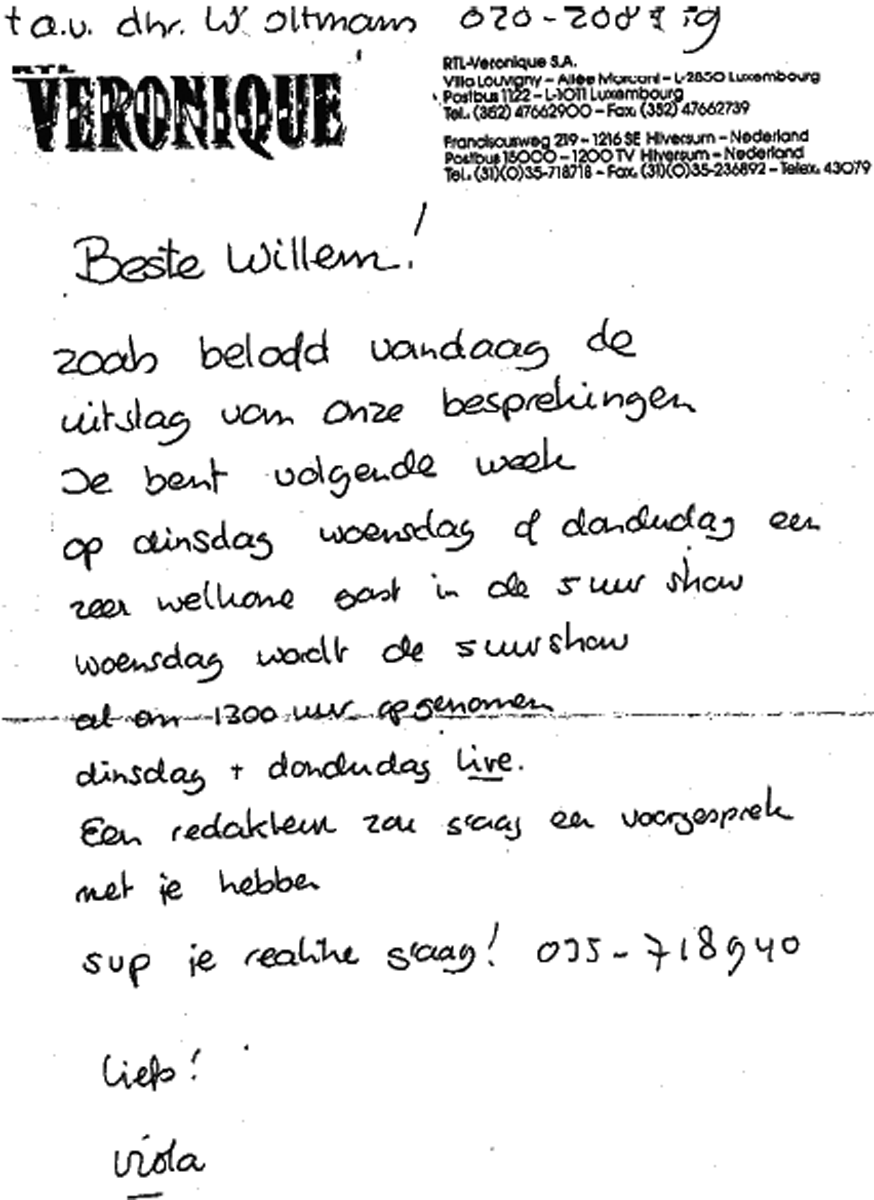 t a.v. dhr. W Oltmans 020-
RTL
VERONIQUE
RTL-Veronique S.A.
Villa Louvigny - Allee Marconi - L-2850 Luxembourg
Postbus 1122 - L-1011 Luxembourg
Tel. (352) 47662900 - Fax. (352) 47662739
Franciscusweg 219 - 1216 SE Hilversum - Nederland
Postbus 15000 - 1200 TV Hilversum - Nederland
Tel. (31)(0)35-718718 - Fax. (31)(0)35-236892 - Telex. 43079
Beste Willem!
zoals belodd vandaag de
uitslag van onze besprekingen
Je bent volgende week
op dinsdag woensdag of donderdag een
zeer welkome gast in de 5 uur show
woensdag wordt de 5 uurshow
al om 1300 uur opgenomen
dinsdag + donderdag live.
Een redakteur zou graag een voorgesprek
met je hebben
je reaktie graag! 035-718940
liefs!
Viola